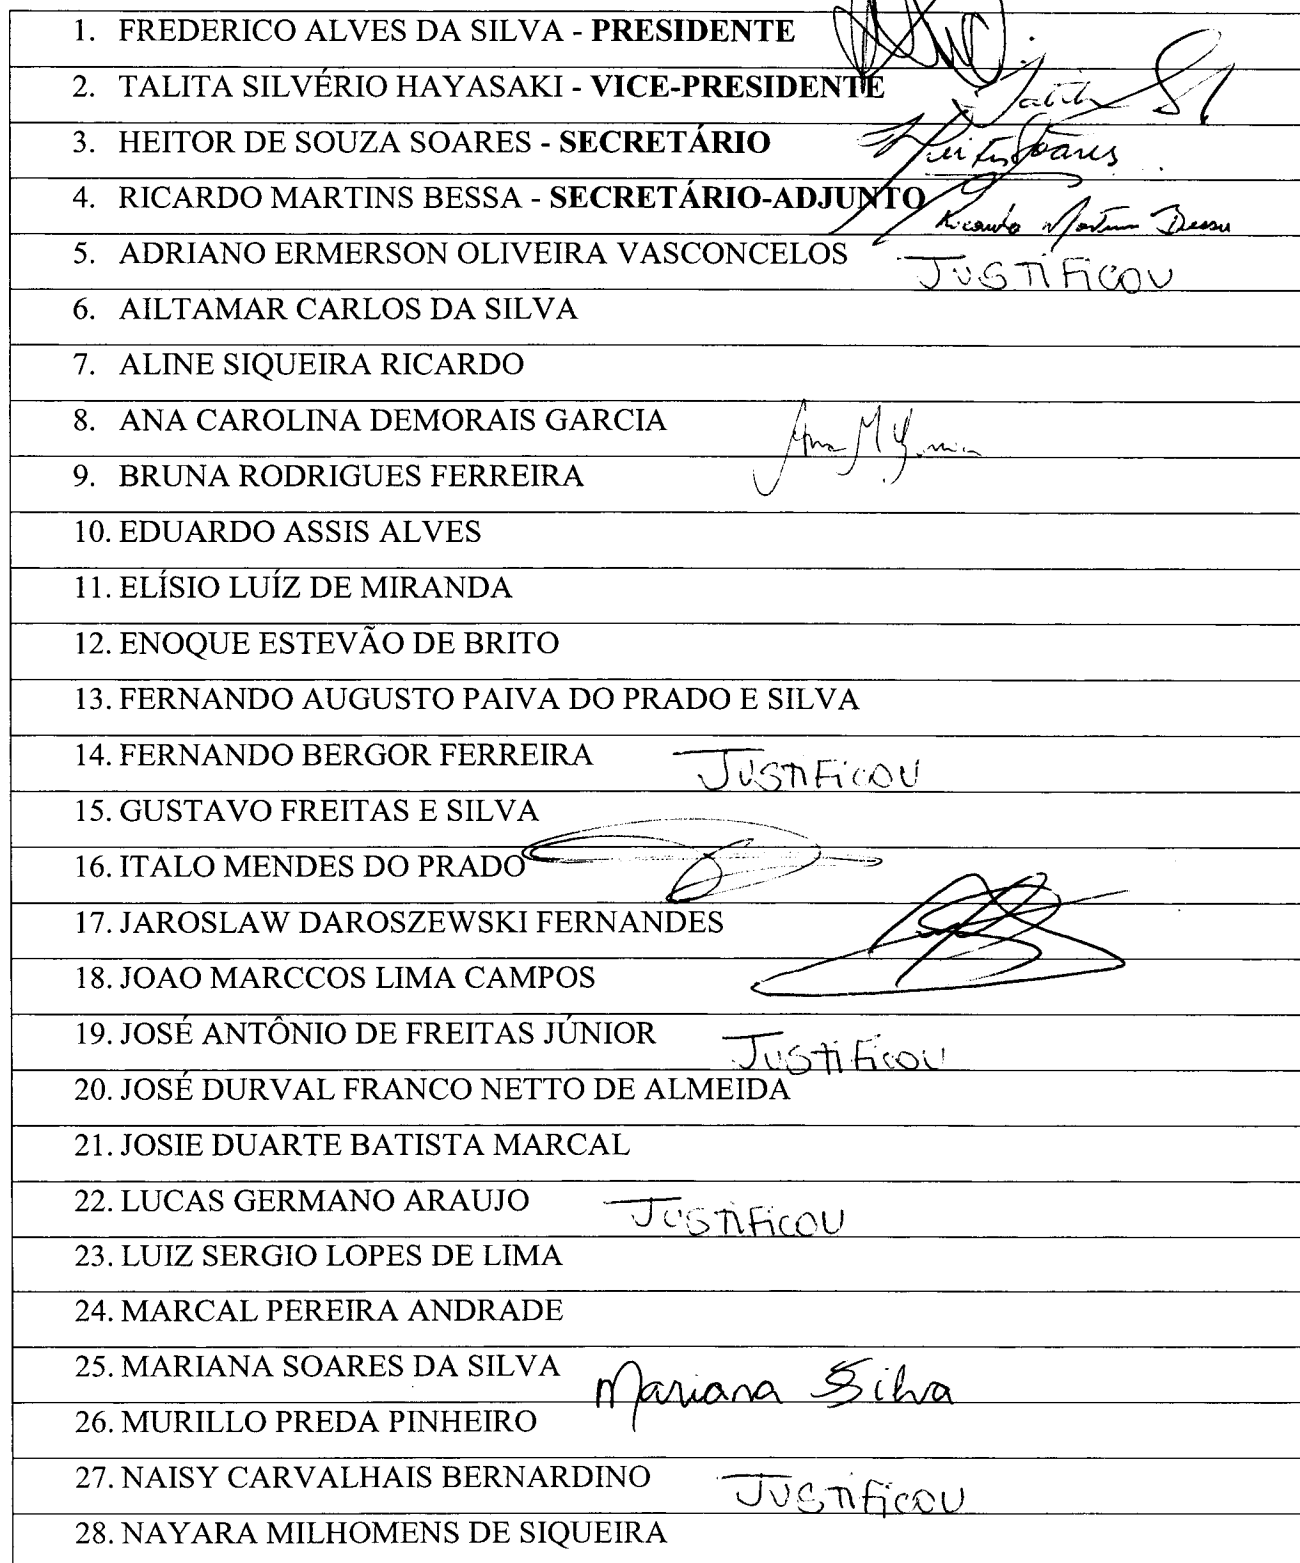 1. FREDERICO ALVES DA SILVA - PRESIDENTE
2. TALITA SILVÉRIO HAYASAKI - VICE-PRESIDENTE
3. HEITOR DE SOUZA SOARES - SECRETÁRIO Heitor Soares
4. RICARDO MARTINS BESSA - SECRETÁRIO-ADJUNTO Ricardo Martins Bessa
5. ADRIANO ERMERSON OLIVEIRA VASCONCELOS JUSTIFICOU
6. AILTAMAR CARLOS DA SILVA
7. ALINE SIQUEIRA RICARDO
8. ANA CAROLINA DEMORAIS GARCIA
9. BRUNA RODRIGUES FERREIRA
10. EDUARDO ASSIS ALVES
11. ELÍSIO LUÍZ DE MIRANDA
12. ENOQUE ESTEVÃO DE BRITO
13. FERNANDO AUGUSTO PAIVA DO PRADO E SILVA
14. FERNANDO BERGOR FERREIRA JUSTIFICOU
15. GUSTAVO FREITAS E SILVA
16. ITALO MENDES DO PRADO
17. JAROSLAW DAROSZEWSKI FERNANDES
18. JOAO MARCCOS LIMA CAMPOS
19. JOSÉ ANTÔNIO DE FREITAS JÚNIOR JUSTIFICOU
20. JOSÉ DURVAL FRANCO NETTO DE ALMEIDA
21. JOSIE DUARTE BATISTA MARCAL
22. LUCAS GERMANO ARAUJO JUSTIFICOU
23. LUIZ SERGIO LOPES DE LIMA
24. MARCAL PEREIRA ANDRADE
25. MARIANA SOARES DA SILVA Mariana Silva
26. MURILLO PREDA PINHEIRO
27. NAISY CARVALHAIS BERNARDINO JUSTIFICOU
28. NAYARA MILHOMENS DE SIQUEIRA